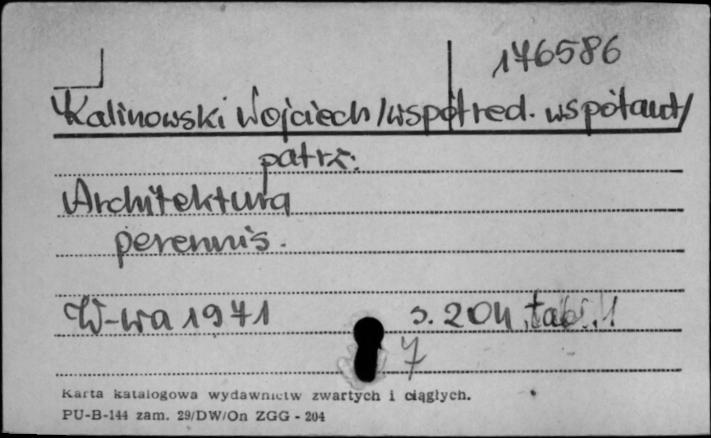 176586
Kalinowski Wojciech /współred. współaut/
patrz:
Architektura
perennis.
W-wa 1971 s. 204, tabl. 1
7
Karta katalogowa wydawnictw zwartych i ciągłych.
PU-B-144 zam. 29/DW/On ZGG - 204